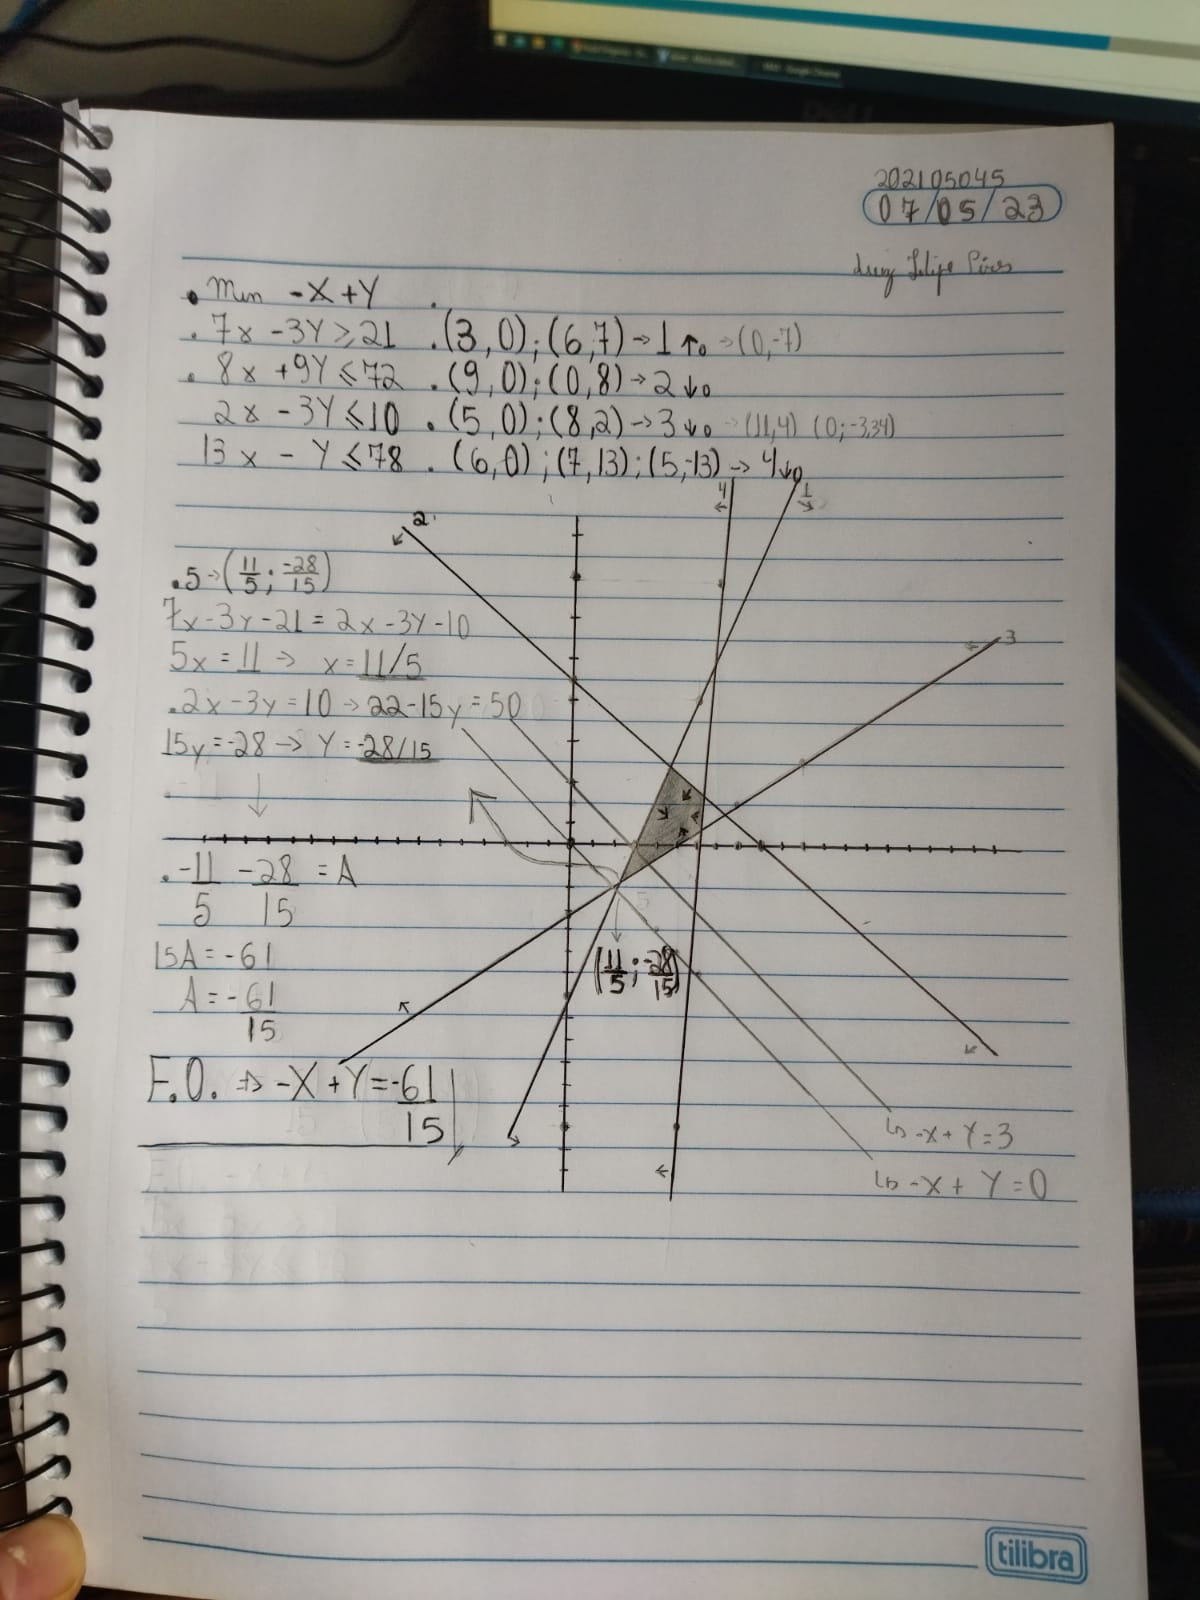 202105045
07/05/23
Luiz Felipe Pires
• Min -X+Y .
. 7x -3Y ≥ 21 . (3,0); (6,7) → 1 ↑o → (0,-7)
. 8x +9Y ≤ 72 . (9,0); (0,8) → 2 ↓o
2x - 3Y ≤ 10 . (5,0); (8,2) → 3 ↓o → (11,4) (0;-3,34)
13x - Y ≤ 78 . (6,0); (7,13); (5,-13) → 4 ↓o
4 1
2
.5→(11/5; -28/15)
7x-3y-21 = 2x-3y-10
3
5x = 11 → x = 11/5
.2x-3y = 10 → 22-15y = 50
15y = -28 → Y = -28/15
. -11/5 -28/15 = A
5
15A = -61
(11/5; -28/15)
A = -61/15
F.O. ⇒ -X + Y = -61/15
↳ -X + Y = 3
↳ -X + Y = 0
tilibra